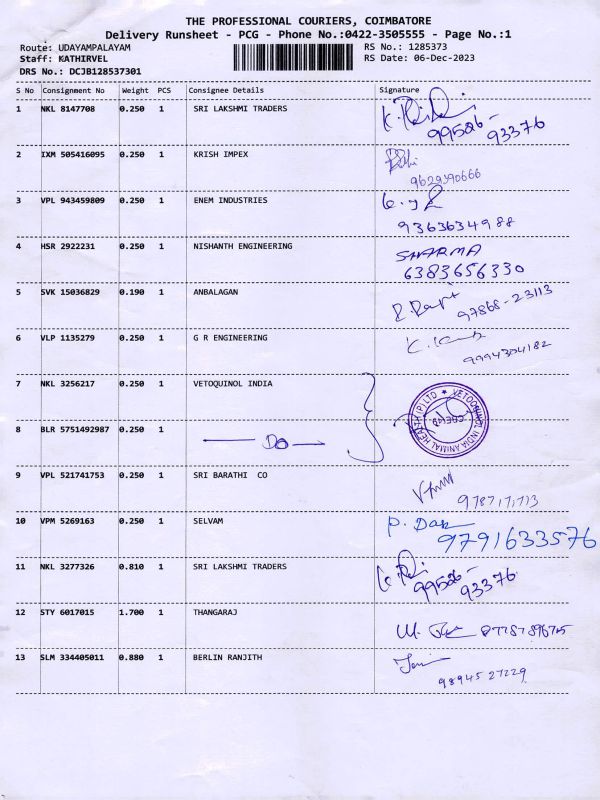 THE PROFESSIONAL COURIERS, COIMBATORE
Delivery Runsheet - PCG - Phone No.:0422-3505555 - Page No.:1
Route: UDAYAMPALAYAM RS No.: 1285373
Staff: KATHIRVEL RS Date: 06-Dec-2023
DRS No.: DCJB128537301
S No Consignment No Weight PCS Consignee Details Signature
1 NKL 8147708 0.250 1 SRI LAKSHMI TRADERS
99526-
93376
2 IXM 505416095 0.250 1 KRISH IMPEX
9629390666
3 VPL 943459809 0.250 1 ENEM INDUSTRIES
9363634988
4 HSR 2922231 0.250 1 NISHANTH ENGINEERING SHARMA
6383656330
5 SVK 15036829 0.190 1 ANBALAGAN
97868-23113
6 VLP 1135279 0.250 1 G R ENGINEERING
9994304182
7 NKL 3256217 0.250 1 VETOQUINOL INDIA
VETOQUINOL INDIA ANIMAL HEALTH (P) LTD
8 BLR 5751492987 0.250 1 Do
9 VPL 521741753 0.250 1 SRI BARATHI CO
9787171713
10 VPM 5269163 0.250 1 SELVAM
9791633576
11 NKL 3277326 0.810 1 SRI LAKSHMI TRADERS
99526-
93376
12 STY 6017015 1.700 1 THANGARAJ
13 SLM 334405011 0.880 1 BERLIN RANJITH
9894527229